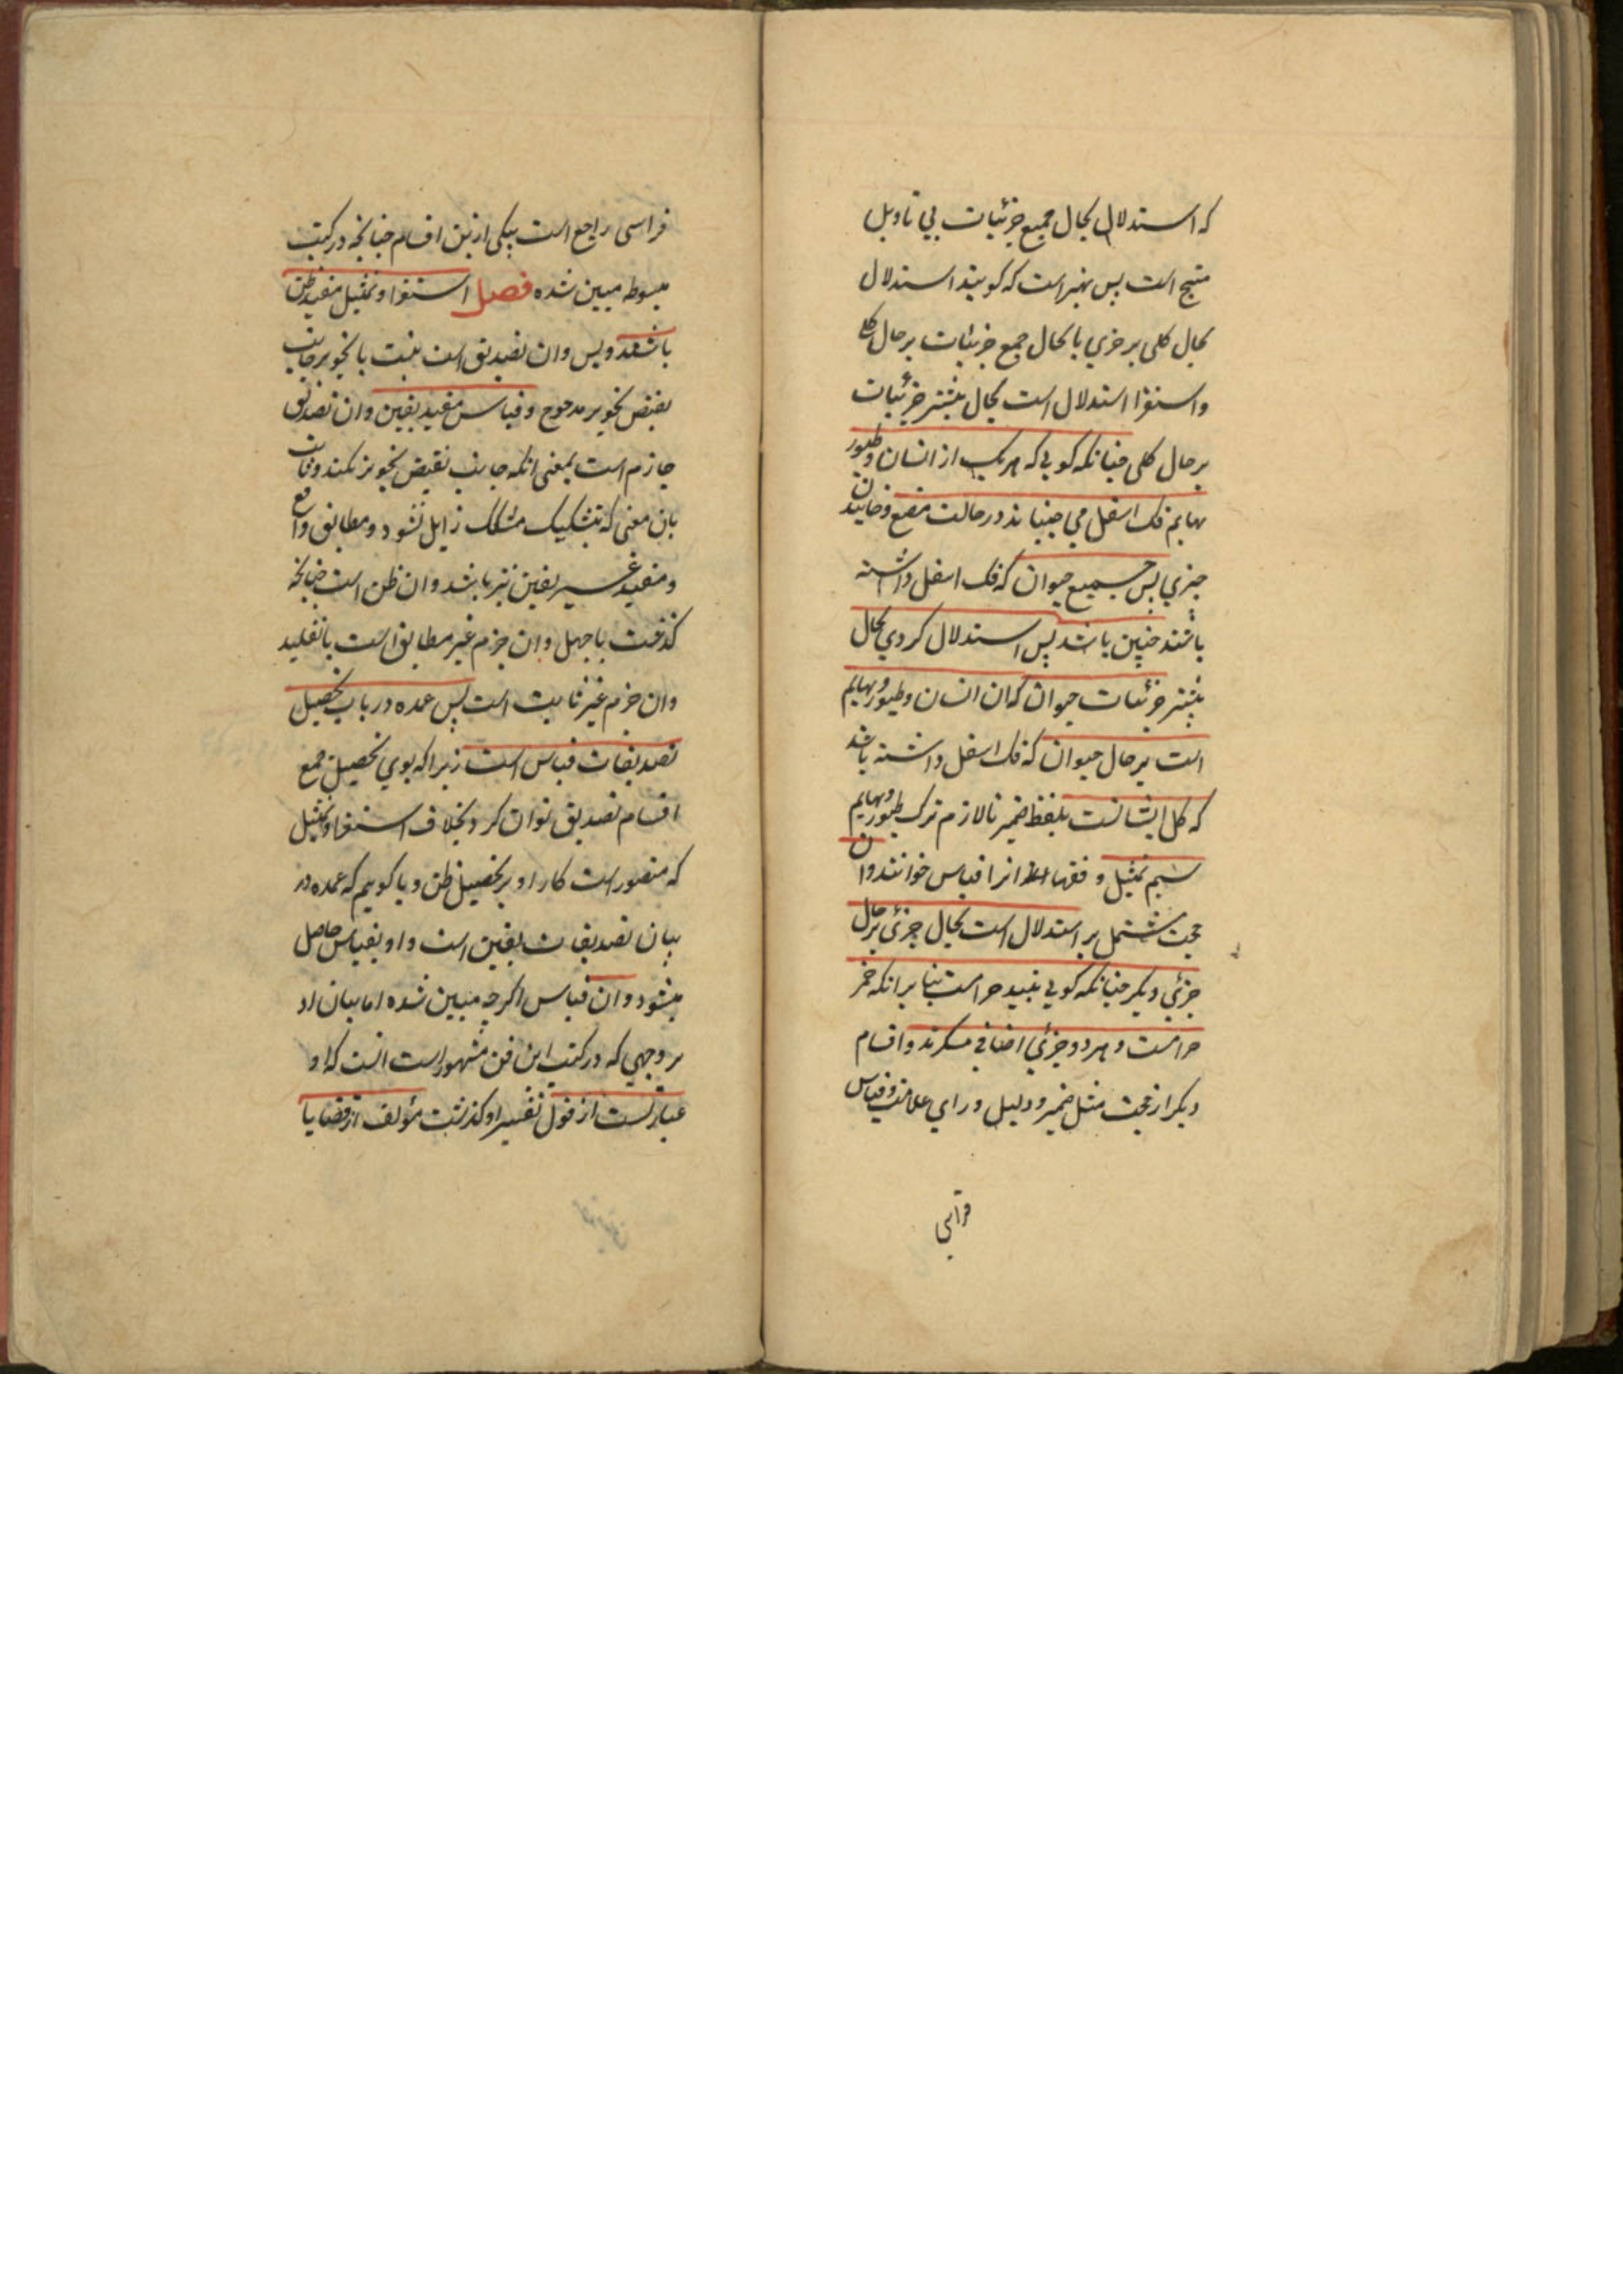 که استدلال بحال جمیع جزئیات بی تاویل
منتج است پس بهتر است که کویند استدلال
بحال کلی بر جزی یا بحال جمیع جزئیات بر حال کلی
واستقرا استدلال است بحال بیشتر جزئیات
بر حال کلی چنانکه کویی که هر یک از انسان و طیور و
بهایم فک اسفل می جنباند در حالت مضغ و خاییدن
چیزی پس جمیع حیوان که فک اسفل داشته
باشند چنین باشد پس استدلال کردی بحال
بیشتر جزئیات حیوان که ان انسان و طیور و بهایم
است بر حال حیوان که فک اسفل داشته باشد
که کل ایشانست بلفظ ضمیر تا لازم ترک طیور و بهایم
سیم تمثیل و فقها انرا قیاس خوانند وان
حجت مشتمل بر استدلال است بحال جزئی بر حال
جزئی دیکر چنانکه کویی نبید حرامست بنا بر انکه خمر
حرامست و هر دو جزئی اضافی مسکرند واقسام
دیکر از حجت مثل ضمیر و دلیل و رای علامت و قیاس
فراسی
فراسی راجع است بیکی ازین اقسام چنانچه در کتب
مبسوطه مبین شده فصل استقرا و تمثیل مفید ظن
باشند و بس وان تصدیق است بنسبت با تجویز جانب
نقیض تجویز مرجوح و قیاس مفید یقین وان تصدیق
جازم است بمعنی انکه جانب نقیض تجویز نکند وثابت
بان معنی که بتشکیک مشکک زایل نشود و مطابق واقع
و مفید غیر یقین نیز باشد وان ظن است چنانچه
کذشت یا جهل وان جزم غیر مطابق است یا تقلید
وان جزم غیر ثابت است پس عمده در باب تحصیل
تصدیقات قیاس است زیرا که بوی تحصیل جمیع
اقسام تصدیق توان کرد بخلاف استقرا و تمثیل
که مقصور است کار او بر تحصیل ظن و یا کوییم که عمده در
بیان تصدیقات یقین است و او بقیاس حاصل
میشود وان قیاس اکرچه مبین شده اما بیان او
بر وجهی که در کتب این فن مشهور است انست که او
عبارتست از قول تفسیر او کذشت مؤلف از قضایا